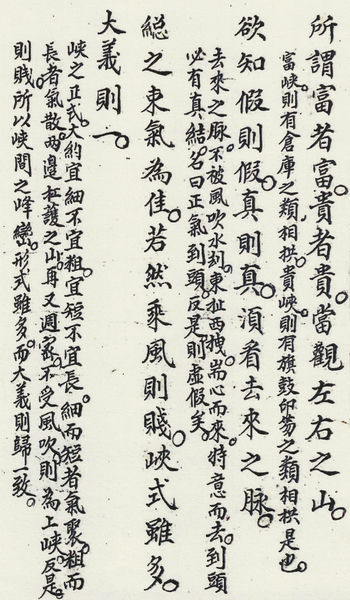 所謂富者富。貴者貴。當觀左右之山。
富峽。則有倉庫之類相拱。貴峽。則有旗鼓印笏之類相拱是也。
欲知假則假。真則真。須看去來之脉。
去來之脉。不被風吹水刼。東扯西拽。耑心而來。特意而去。到頭
必有真結。名曰正氣到頭。反是則虛假矣。
總之束氣為佳。若然乘風則賤。峽式雖多。
大義則一。
峽之正式。大約宜細不宜粗。宜短不宜長。細而短者氣聚。粗而
長者氣散。两邊枉護之山。再又週家。不受風吹。則為上峽。反是。
則賤。所以峽間之峰巒。形式雖多。而大義則歸一致。